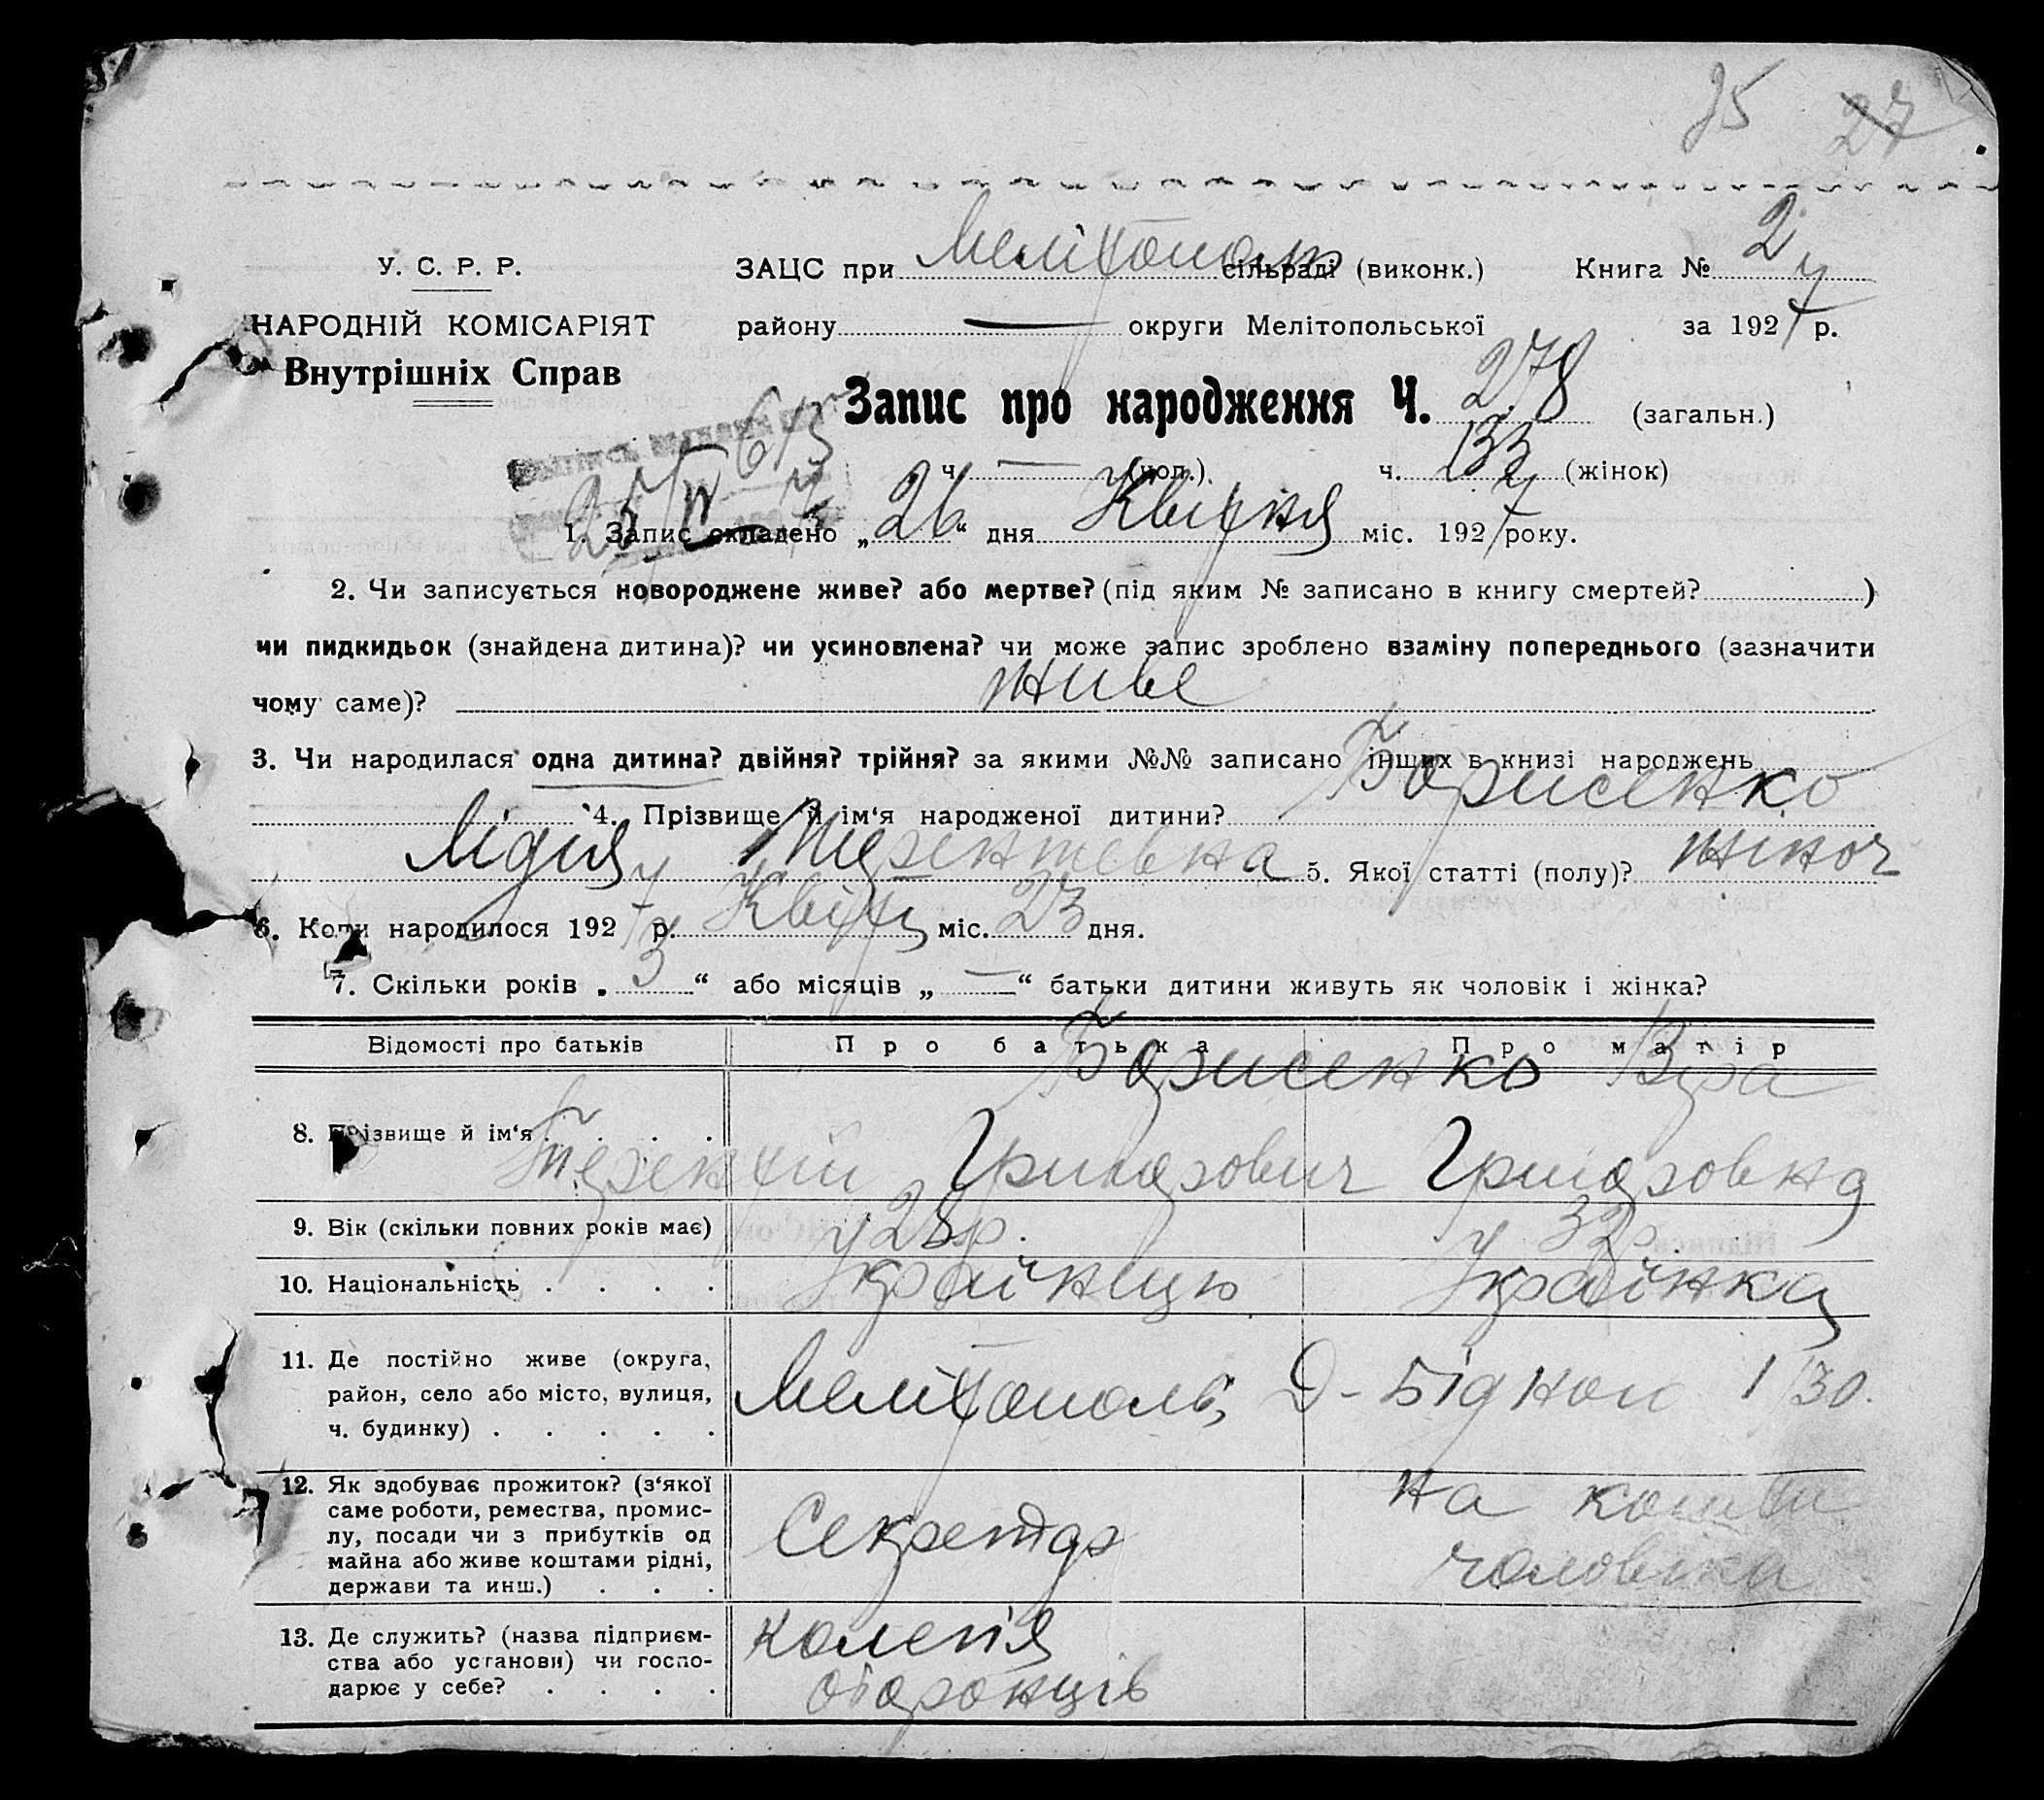 35 27
У. С. Р. Р. ЗАЦС при Мелітополь сільраді (виконк.) Книга № 2
НАРОДНІЙ КОМІСАРІЯТ району — округи Мелітопольської за 1927 р.
Внутрішніх Справ
Запис про народження Ч. 278 (загальн.)
ч. — (чол.) ч. 133 (жінок)
1. Запис складено „26“ дня Квітня міс. 1927 року.
2. Чи записується новороджене живе? або мертве? (під яким № записано в книгу смертей? )
чи пидкидьок (знайдена дитина)? чи усиновлена? чи може запис зроблено взаміну попереднього (зазначити
чому саме)? живе
3. Чи народилася одна дитина? двійня? трійня? за якими №№ записано інших в книзі народжень
4. Прізвище й ім‘я народженої дитини? Борисенко
Лідия Терентевна 5. Якої статті (полу)? жіноч
6. Коли народилося 1927 р. Квітн міс. 23 дня.
7. Скільки років „3“ або місяців „—“ батьки дитини живуть як чоловік і жінка?
Відомості про батьків Про батька Про матір
Борисенко Віра
8. Прізвище й ім‘я . . . . Терентій Григорович Григоровна
9. Вік (скільки повних років має) 28 р. 32 р.
10. Національність . . . . Українець Українка
11. Де постійно живе (округа,
район, село або місто, вулиця, Мелітополь, Д-Бідного 1/30.
ч. будинку) . . . . .
12. Як здобуває прожиток? (з‘якої на кошти
саме роботи, ремества, промис-
лу, посади чи з прибутків од Секретар
майна або живе коштами рідні, чоловіка
держави та инш.) . . .
13. Де служить? (назва підприєм- колегія
ства або установи) чи госпо-
дарює у себе? . . . . оборонців